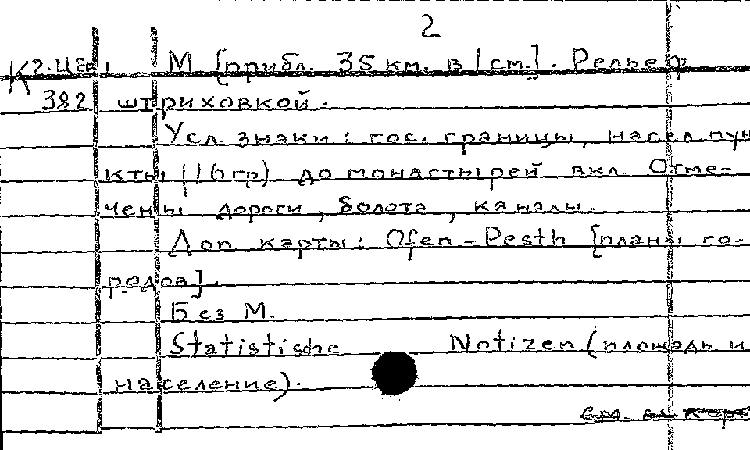 2
К 2-ЦЕВ М [прибл. 35 км. в 1 см.]. Рельеф
382 штриховкой.
Усл. знаки: гос. границы, насел. пун
кты (16 гр) до монастырей вкл. Отме-
чены дороги, болота, каналы.
Доп. карты: Ofen-Pesth [планы го-
родов].
Без М.
Statistische Notizen (площадь и
население).
см. н